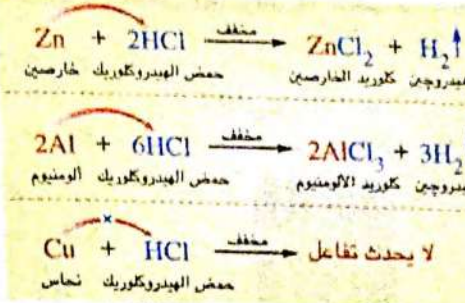 Zn + 2HCl مخفف ZnCl₂ + H₂↑
خارصين حمض الهيدروكلوريك كلوريد الخارصين هيدروجين
2Al + 6HCl مخفف 2AlCl₃ + 3H₂
ألومنيوم حمض الهيدروكلوريك كلوريد الألومنيوم
Cu + HCl مخفف لا يحدث تفاعل
نحاس حمض الهيدروكلوريك